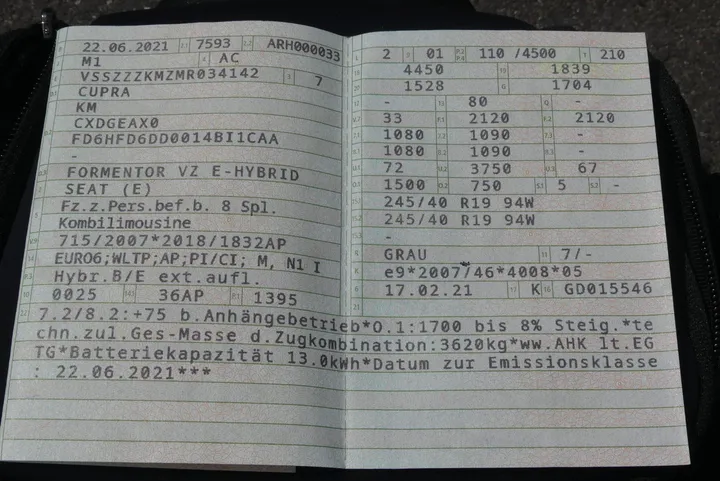 22.06.2021 7593 ARH000033
M1 AC
VSSZZZKMZMR034142 7
CUPRA
KM
CXDGEAX0
FD6HFD6DD0014BI1CAA
-
FORMENTOR VZ E-HYBRID
SEAT (E)
Fz.z.Pers.bef.b. 8 Spl.
Kombilimousine
715/2007*2018/1832AP
EURO6;WLTP;AP;PI/CI; M, N1 I
Hybr.B/E ext.aufl.
0025 36AP 1395
2 01 110 /4500 210
4450 1839
1528 1704
- 80 -
33 2120 2120
1080 1090 -
1080 1090 -
72 3750 67
1500 750 5 -
245/40 R19 94W
245/40 R19 94W
-
GRAU 7/-
e9*2007/46*4008*05
17.02.21 K GD015546
7.2/8.2:+75 b.Anhängebetrieb*O.1:1700 bis 8% Steig.*te
chn.zul.Ges-Masse d.Zugkombination:3620kg*ww.AHK lt.EG
TG*Batteriekapazität 13.0kWh*Datum zur Emissionsklasse
: 22.06.2021***